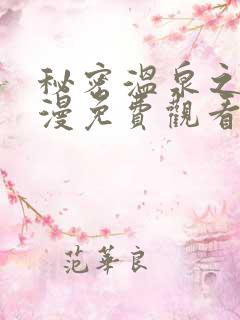 秘密溫泉之
漫免費觀看
范華良